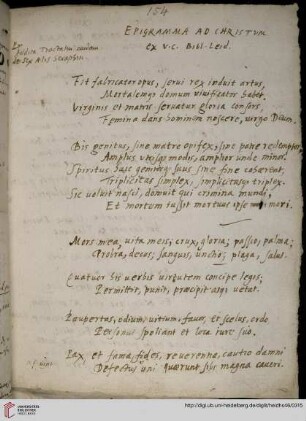 154
EPIGRAMMA AD CHRISTUM
ex V.C. Bibl. Leid.
Fit fabricator opus, servi rex induit artus,
Mortalemque domum vivificator habet.
Virginis et matris servatur gloria consors,
Femina dans hominem noscere, virgo Deum.
Bis genitus, sine matre opifex, sine patre redemptor,
Amplus utrisque modis, amplior unde minor.
Spiritus hac genitorque suus sine fine cohaerent,
Triplicitas simplex, simplicitasque triplex.
Sic voluit nasci, domuit qui crimina mundi,
Et mortem jussit mortuus ipse mori.
Mors mea, vita meis, crux, gloria; passio, palma;
Probra, decus; sanguis, unctio; plaga, salus.
Quatuor his verbis virtutem concipe legis;
Permittit, punit, praecipit atque vetat.
Paupertas, odium, vitium, favor, et scelus, ordo
Personas spoliant et loca jure suo.
Pax et fama, fides, reverentia, cautio damni
Defectus veri quaerunt sibi magna caveri.
http://digi.ub.uni-heidelberg.de/diglit/heidhs46/0315